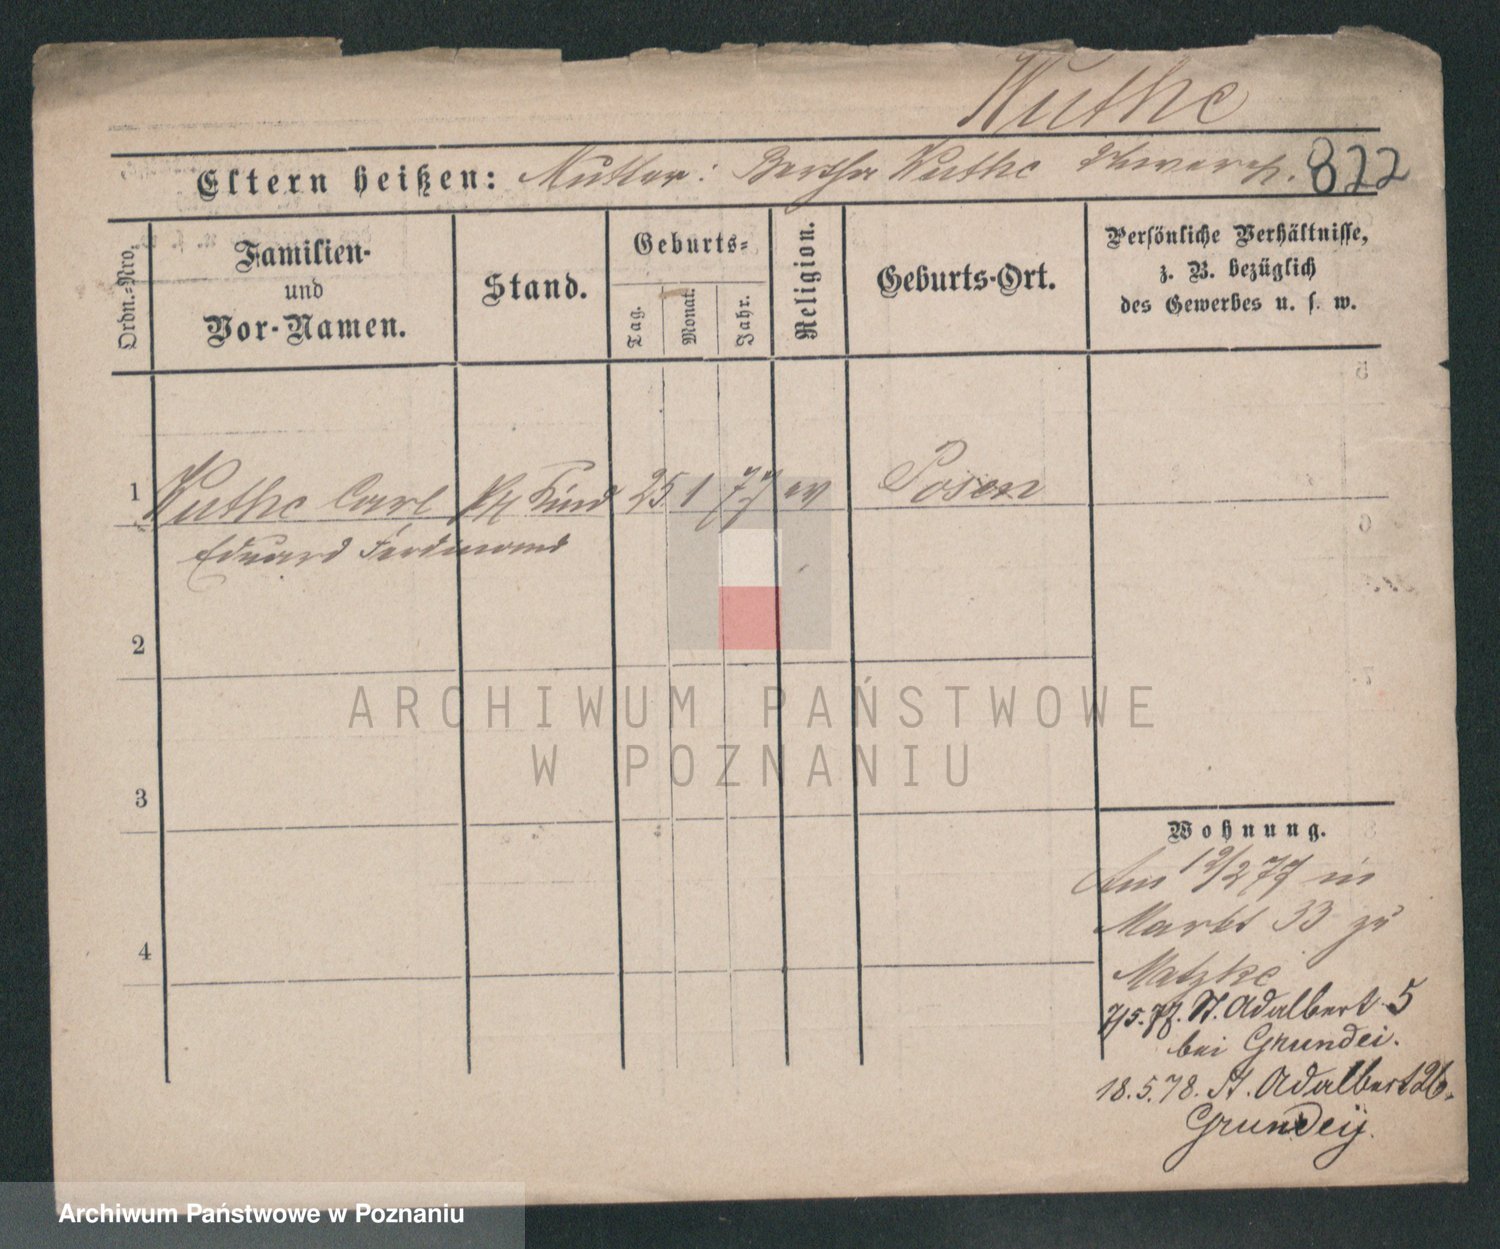 Wuthe
Eltern heißen: Mutter: Bertha Wuthe 822
Ordn.-Nro.
Familien-
und
Vor-Namen.
Stand.
Geburts-
Tag.
Monat.
Jahr.
Religion.
Geburts-Ort.
Persönliche Verhältnisse,
z. B. bezüglich
des Gewerbes u. s. w.
1 Wuthe Carl Kind 25 1 77 ev Posen
Eduard Ferdinand
2
3
4
Wohnung.
Am 19/2 77 in
Markt 33 zu
Matzke
7/5.77. St. Adalbert 5
bei Grundei.
18.5.78. St. Adalbert 26.
Grundey.
ARCHIWUM PAŃSTWOWE
W POZNANIU
Archiwum Państwowe w Poznaniu